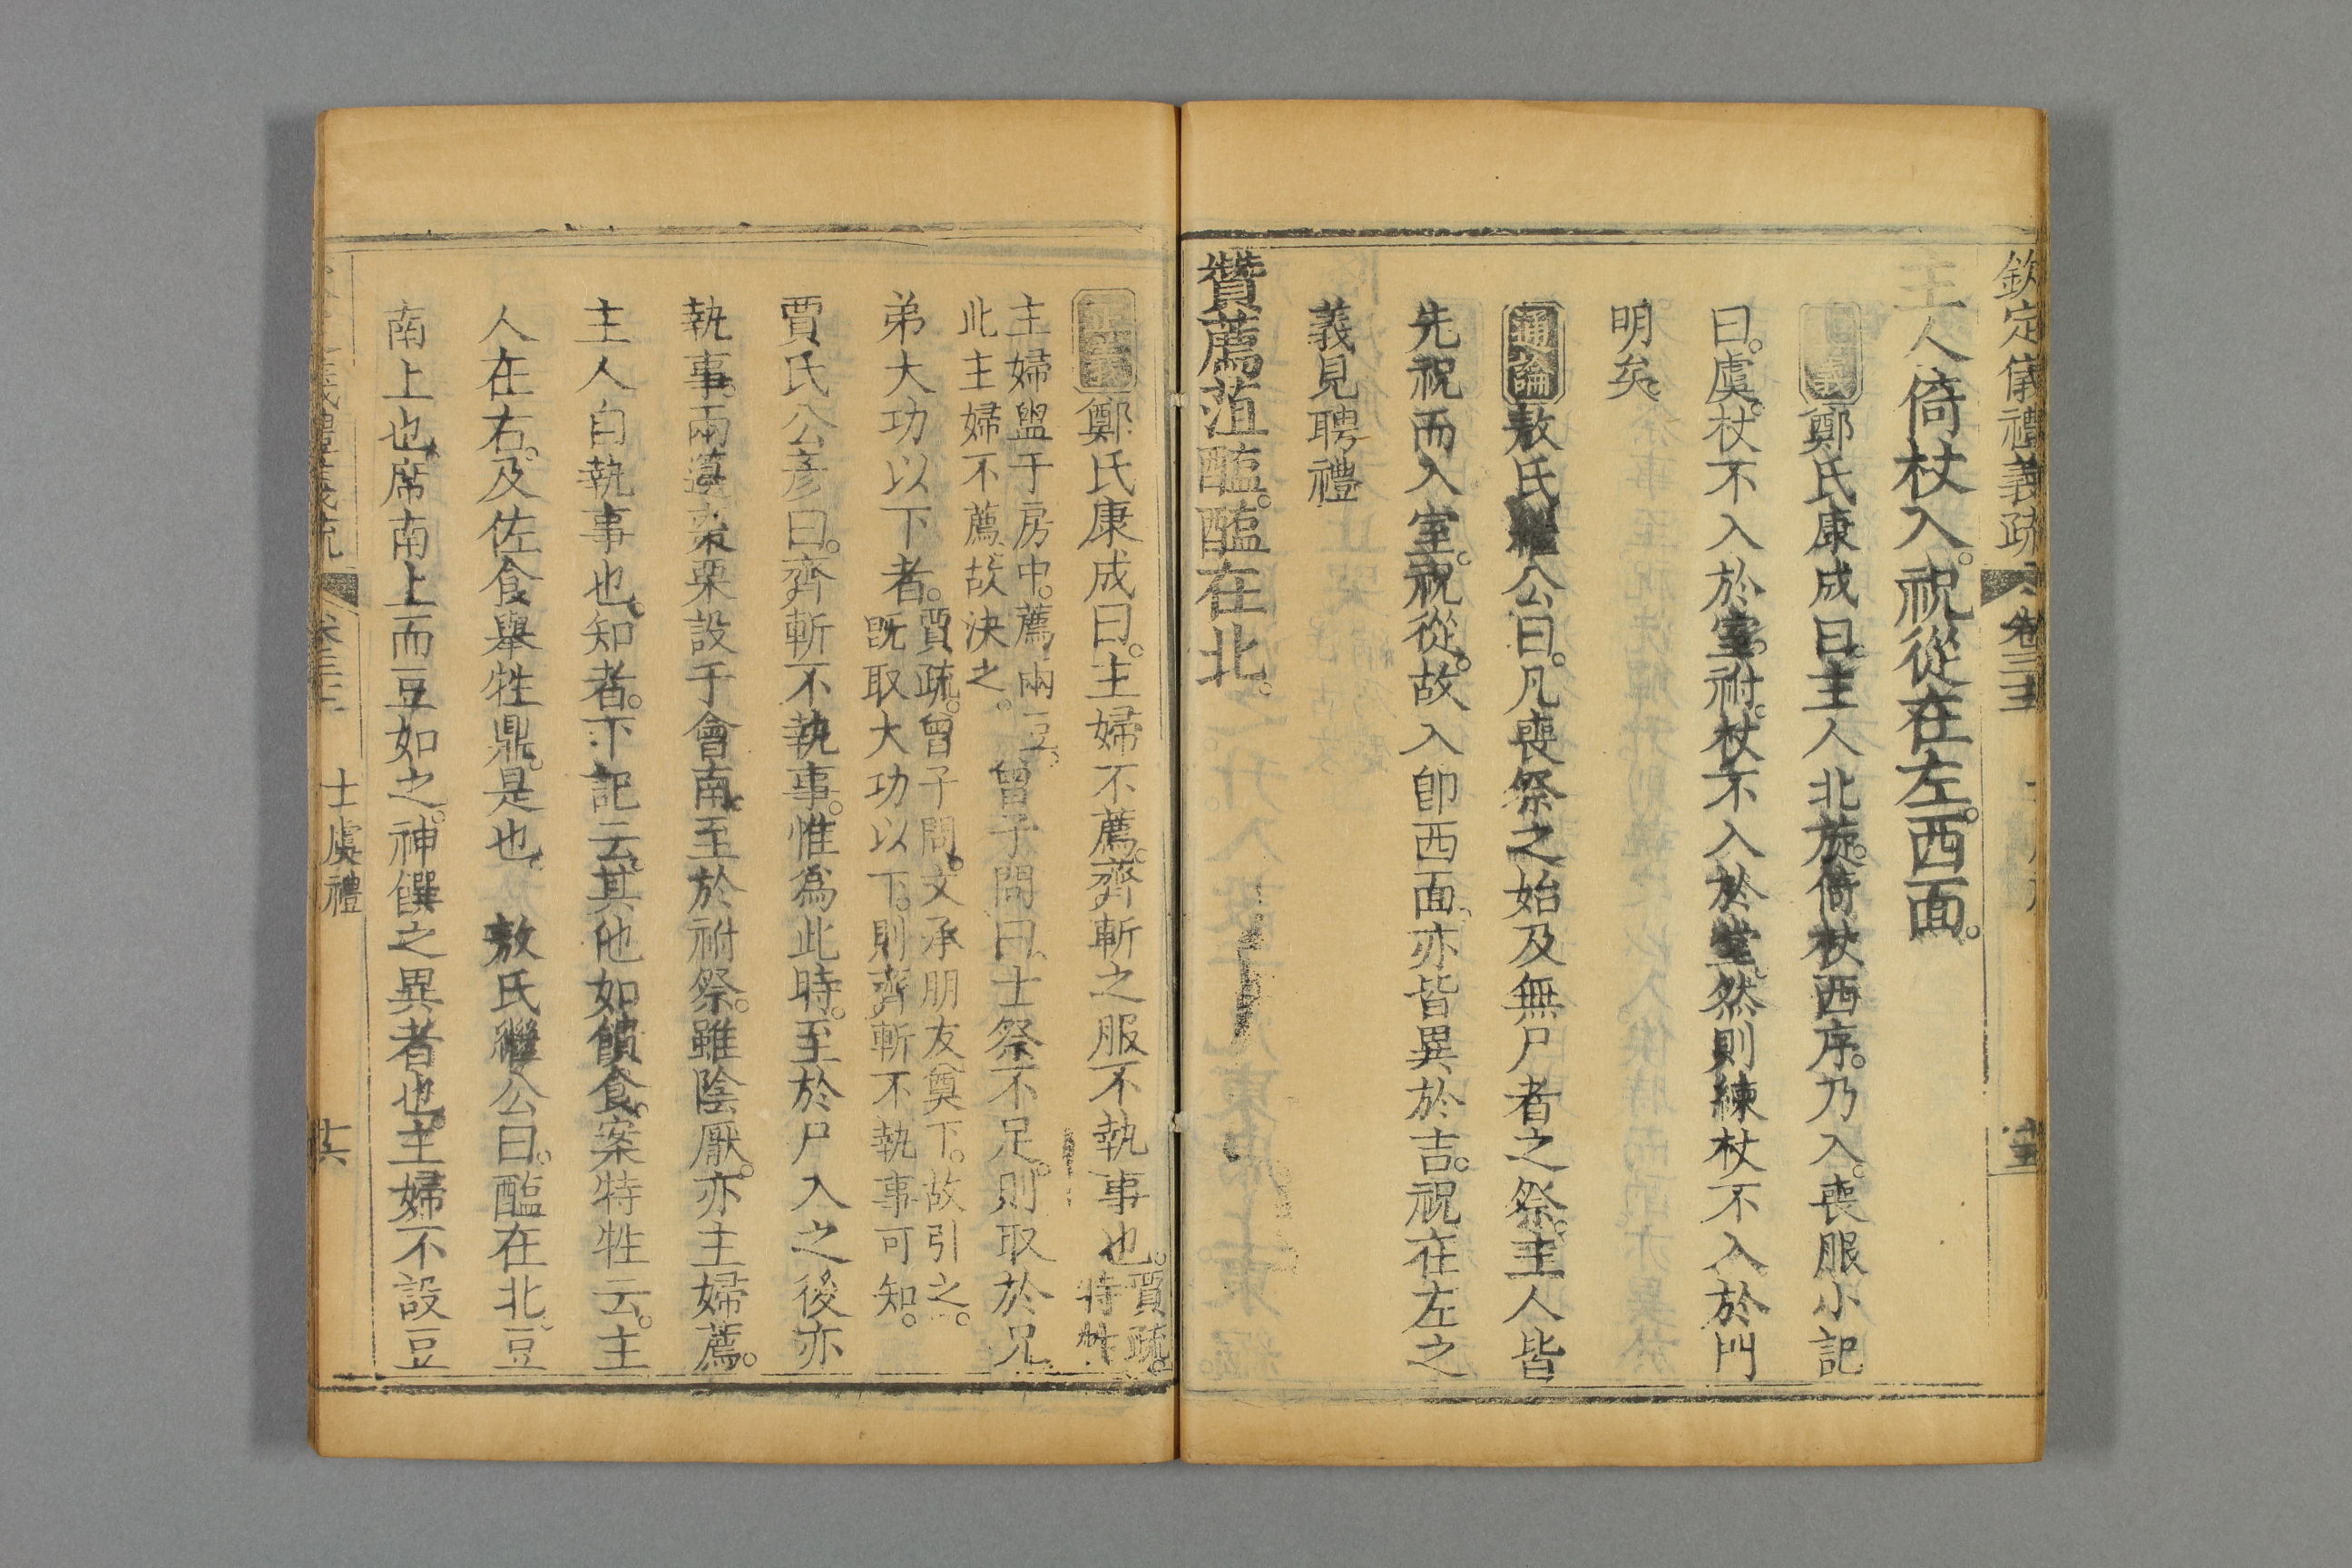 欽定儀禮義疏 卷三十三
主人倚杖入。祝從在左。西面。
正義鄭氏康成曰。主人北旋。倚杖西序。乃入。喪服小記
曰。虞。杖不入於室。祔。杖不入於堂。然則練杖不入於門
明矣。
通論敖氏繼公曰。凡喪祭之始及無尸者之祭。主人皆
先祝而入室。祝從。故入卽西面。亦皆異於吉。祝在左之
義見聘禮
贊薦菹醢。醢在北。
正義鄭氏康成曰。主婦不薦。齊斬之服不執事也。賈疏。特牲
主婦盥于房中。薦兩豆。此主婦不薦。故決之。曾子問曰。士祭不足。則取於兄
弟大功以下者。賈疏。曾子問。文承朋友奠下。故引之。旣取大功以下。則齊斬不執事可知。
賈氏公彦曰。齊斬不執事。惟爲此時。至於尸入之後亦
執事。兩籩棗栗設于會南。至於祔祭。雖陰厭。亦主婦薦。
主人自執事也。知者。下記云。其他如饋食。案特牲云。主
人在右。及佐食舉牲鼎。是也。 敖氏繼公曰。醢在北。豆
南上也。席南上而豆如之。神饌之異者也。主婦不設豆
儀禮義疏 卷三十三 士虞禮 十六